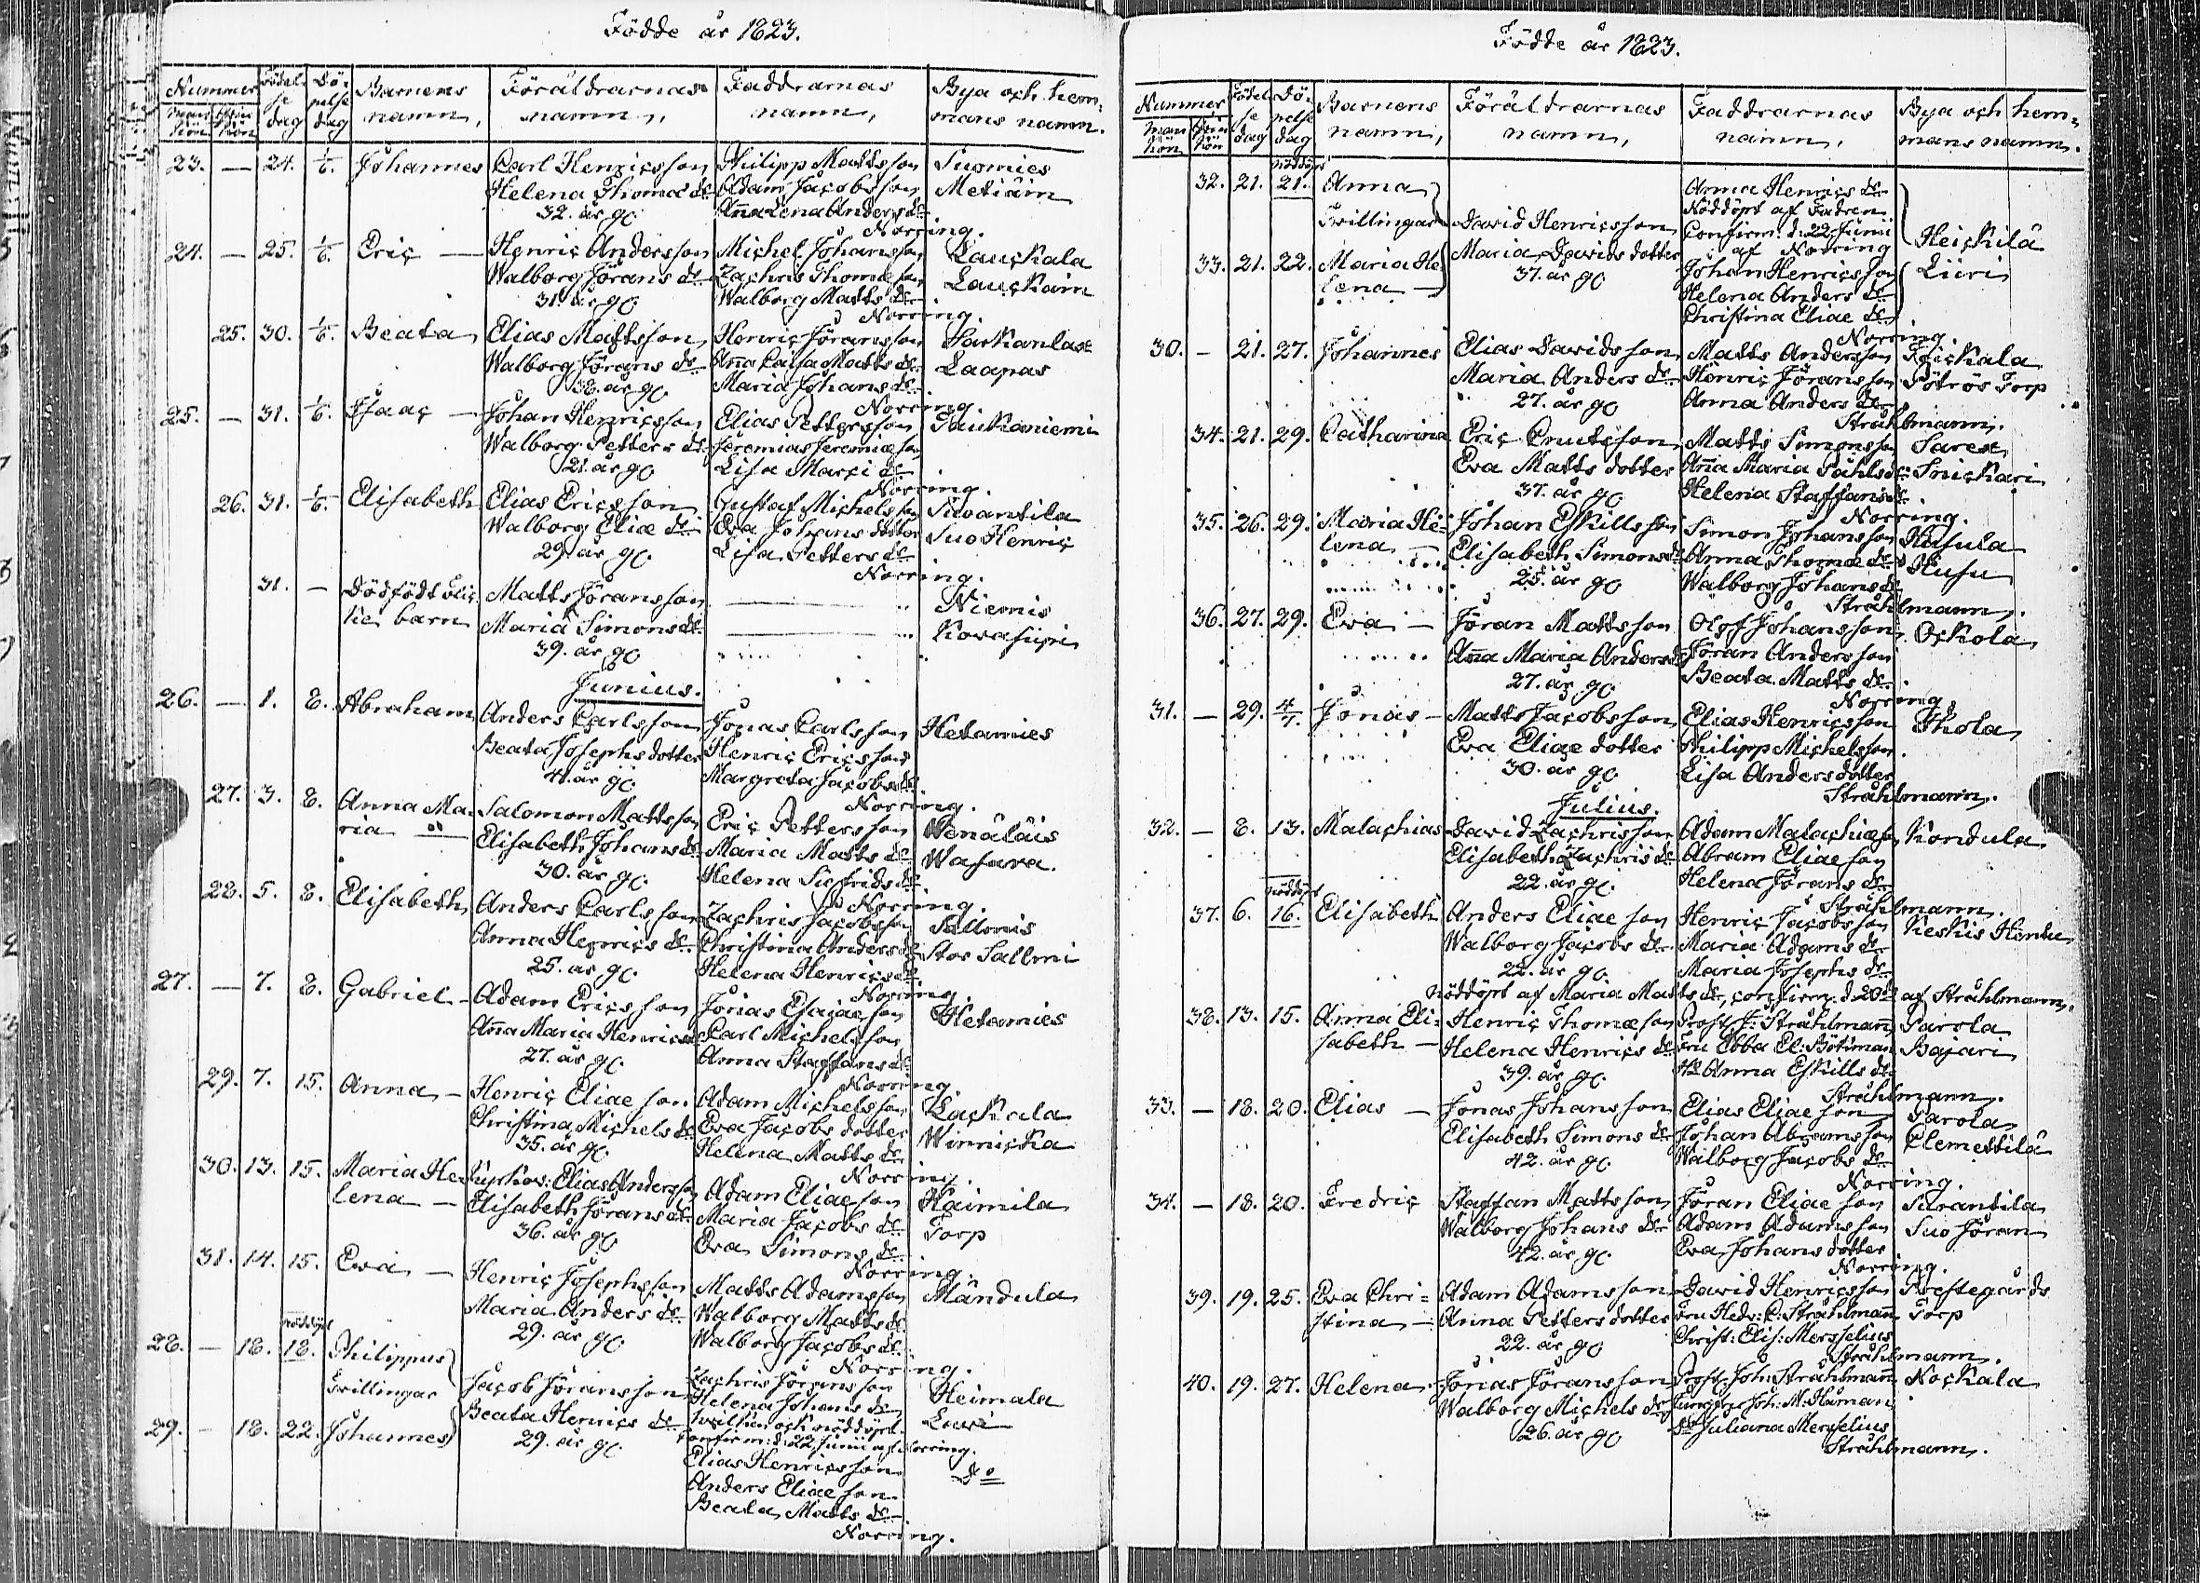 Födde år 1823.
Nummer Födelse dag Döpelse dag Barnens namn, Föräldrarnas namn, Faddrarnas namn, Bya och hemmans namn.
23. — 24. 1/6. Johannes Carl Henricsson Philipp Mattsson Suomies
Helena Thomæ dr Adam Jacobsson Metiäin
32. år gl. Aña Lena Anders dr
Norring.
24. — 25. 1/6. Eric — Henric Andersson Michel Johansson Lauckala
Walborg Jörans dr Zachris Thomæ son Lauckain
31. år gl. Walborg Matts dr
Norring.
25. 30. 1/6. Beata Elias Mattsson Henric Göransson
Walborg Jörans dr Aña Caisa Matts dr Laapas
38. år gl. Maria Johans dr
Norring.
25. — 31. 1/6. Isaac — Johan Henricsson Elias Pettersson Taukaniemi
Walborg Petters dr Jeremias Jeremiæ son
21. år gl. Lisa Marci dr
Norring.
26. 31. 1/6. Elisabeth Elias Ericsson Gustaf Michelsson Suvantila
Walborg Eliæ dr Eva Johans dotter Suo Henric
29. år gl. Lisa Petters dr
Norring.
31. — Dödfödt flic Matts Göransson Niemis
ke barn Maria Simons dr
39. år gl.
Junius.
26. — 1. 8. Abraham Anders Carlsson Jonas Carlsson Hetamies
Beata Josephs dotter Henric Ericsson
41. år gl. Margreta Jacobs dr
Norring.
27. 3. 8. Anna Ma- Salomon Mattsson Eric Pettersson Wenäläis
ria — Elisabeth Johans dr Maria Matts dr Wasara.
30. år gl. Helena Sigfrids dr
Norring.
28. 5. 8. Elisabeth Anders Carlsson Zachris Jacobsson Sallmis
Anna Henrics dr Christina Anders dr Stor Sallmi
25. år gl. Helena Henrics dr
Norring.
27. — 7. 8. Gabriel — Adam Ericsson Jonas Esaiae son Hetamies
Aña Maria Henrics dr Carl Michelsson
27. år gl. Anna Staffans dr
Norring.
29. 7. 15. Anna — Henric Eliae son Adam Michelsson Lackala
Christina Michels dr Eva Jacobs dotter Winnicka
35. år gl. Helena Matts dr
Norring.
30. 13. 15. Maria He- Elias Andersson Adam Eliae son Kaimila
lena — Elisabeth Jörans dr Maria Jacobs dr Torp
36. år gl. Eva Simons dr
Norring.
31. 14. 15. Eva — Henric Josephsson Matts Adamsson Mändula
Maria Anders dr Walborg Matts dr
29. år gl. Walborg Jacobs dr
Norring.
nöddöpt
28. — 18. 18. Philippus Zachris Göransson
Tvillingar Jacob Göransson Helena Johans dr Heimala
Beata Henrics dr nöddöpt. Lauri
29. — 18. 22. Johannes 29. år gl. Confirm: d: 22 Junii af Norring.
Elias Henricsson do
Anders Eliae son
Beata Matts dr
Norring.
Födde år 1823.
Nummer Födelse dag Döpelse dag Barnens namn, Föräldrarnas namn, Faddrarnas namn, Bya och hemmans namn.
nöddöpt
32. 21. 21. Anna Anna Henrics dr
Tvillingar David Henricsson Nöddöpt af Fadren
Confirm: d: 22 Junii
af Norring Heickilä
33. 21. 22. Maria He- Maria Davids dotter Johan Henricsson Liiri
lena — 37. år gl. Helena Anders dr
Christina Eliae dr
Norring.
30. — 21. 27. Johannes Elias Davidsson Matts Andersson
Maria Anders dr Henric Göransson Torp
27. år gl. Anna Anders dr
Stråhlmann.
34. 21. 29. Catharina Eric Cnutsson Matts Simonsson Sares
Eva Matts dotter Aña Maria Påhls dr Snickari
37. år gl. Helena Staffans dr
Norring.
35. 26. 29. Maria He- Johan Eskillsson Simon Johansson Husula
lena — Elisabeth Simons dr Anna Thomæ dr Husu
25. år gl. Walborg Johans dr
Stråhlmann.
36. 27. 29. Eva — Jöran Mattsson Olof Johansson Ockola
Aña Maria Anders dr Jöran Andersson
27. år gl. Beata Matts dr
Norring.
31. — 29. 4/7. Jonas — Matts Jacobsson Elias Henricsson Ihola
Eva Eliae dotter Philipp Michelsson
30. år gl. Lisa Anders dotter
Stråhlmann.
Julius.
32. — 8. 13. Malachias David Zachrisson Adam Malachiæ son Kondula
Elisabeth Zachris dr Abram Eliae son
22. år gl. Helena Jörans dr
Stråhlmann.
nöddöpt
37. 6. 16. Elisabeth Anders Eliae son Henric Jacobsson Keskis Hendu
Walborg Jacobs dr Maria Adams dr
22. år gl. Maria Josephs dr
nöddöpt af Maria Matts dr, confirm: d 20de af Stråhlmann.
38. 13. 15. Anna Eli- Henric Thomæ son Prost: J: Stråhlmann Parola
sabeth — Helena Henrics dr Fru Ebba El: Bötiman Bajari
39. år gl. Anna Eskills dr
Stråhlmann.
33. — 18. 20. Elias — Jonas Johansson Elias Eliae son Parola
Elisabeth Simons dr Johan Abramsson Clemettilä
42. år gl. Walborg Jacobs dr
Norring.
34. — 18. 20. Fredric Staffan Mattsson Jöran Eliae son Suvantila
Walborg Johans dr Adam Adamsson Suo Jöran
42. år gl. Eva Johans dotter
Norring.
39. 19. 25. Eva Chri- Adam Adamsson David Henricsson Prestegårds
stina — Anna Petters dotter Fru Hedv: C: Stråhlmann Torp
22. år gl. Christ: Elis: Merselius
Stråhlmann.
40. 19. 27. Helena Jonas Göransson Prost Joh: Stråhlmann Nockala
Walborg Michels dr Jungfr Joh: M: Haman
26. år gl. do Juliana Merselius
Stråhlmann.